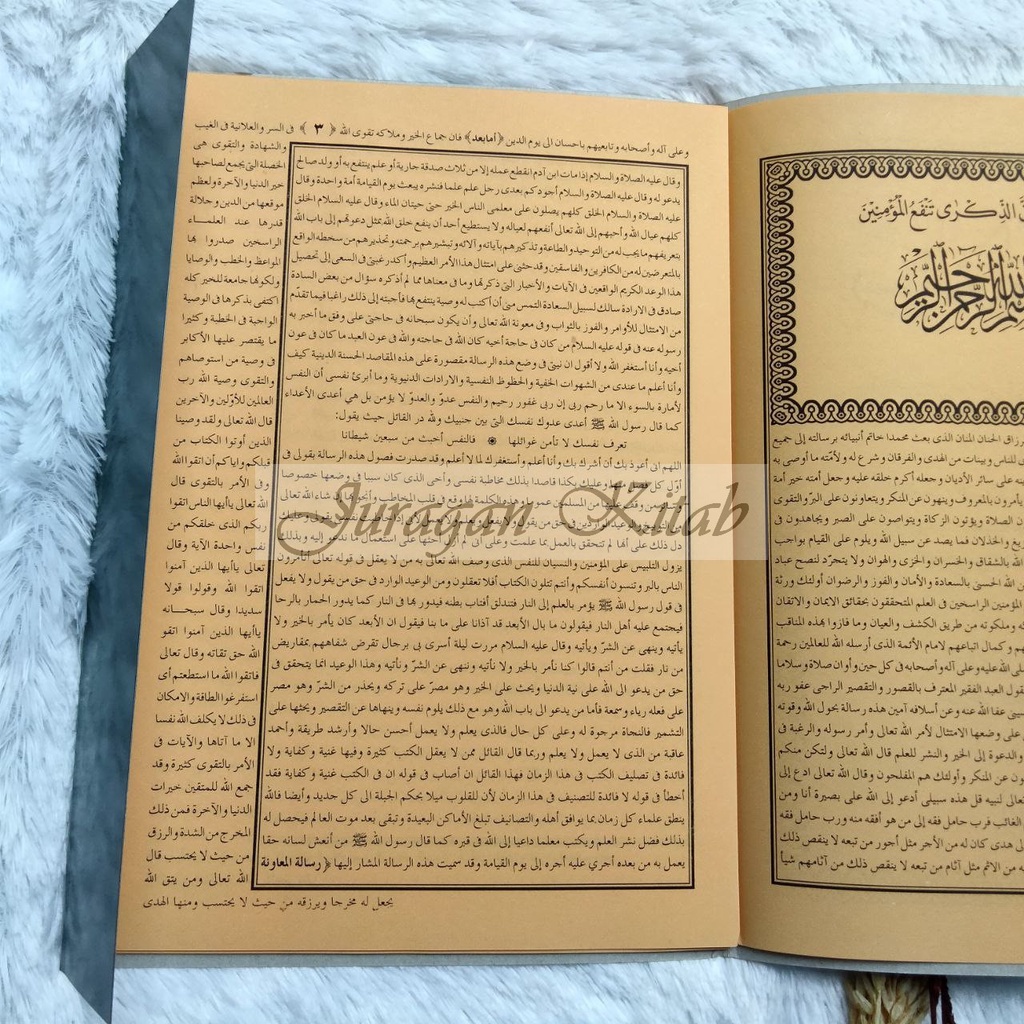 الذِّكْرَى تَنْفَعُ الْمُؤْمِنِيْنَ
الله الرحمن الرحيم
الحنان المنان الذى بعث محمدا خاتم أنبيائه برسالته إلى جميع
للناس وبينات من الهدى والفرقان وشرع له ولأمته ما أوصى به
على سائر الأديان وجعله أكرم خلقه عليه وجعل أمته خير أمة
يأمرون بالمعروف وينهون عن المنكر ويتعاونون على البر والتقوى
الصلاة ويؤتون الزكاة ويتواصون على الصبر ويجاهدون فى
والخذلان فما يصد عن سبيل الله ويلوم على القيام بواجب
الله بالشقاق والخسران والخزى والهوان ولا يتجرّد لنصح عباد
الله الحسنى بالسعادة والأمان والفوز والرضوان أولئك ورثة
المؤمنين الراسخين فى العلم المتحققون بحقائق الايمان والاتقان
وملكوته من طريق الكشف والعيان وما فازوا بهذه المناقب
وكمال اتباعهم لامام الأئمة الذى أرسله الله للعالمين رحمة
الله عليه وعلى آله وأصحابه فى كل حين وأوان صلاة وسلاما
العبد الفقير المعترف بالقصور والتقصير الراجى عفو ربه
عفا الله عنه وعن أسلافه آمين هذه رسالة بحول الله وقوته
على وضعها الامتثال لأمر الله تعالى وأمر رسوله والرغبة فى
والدعوة إلى الخير والنشر للعلم قال الله تعالى ولتكن منكم
عن المنكر وأولئك هم المفلحون وقال الله تعالى ادع إلى
تعالى لنبيه قل هذه سبيلى أدعو إلى الله على بصيرة أنا ومن
الغائب فرب حامل فقه إلى من هو أفقه منه ورب حامل فقه
هدى كان له من الأجر مثل أجور من تبعه لا ينقص ذلك
من الاثم مثل آثام من تبعه لا ينقص ذلك من آثامهم شيأ
وعلى آله وأصحابه وتابعيهم باحسان الى يوم الدين ﴿أما بعد﴾ فان جماع الخير وملاكه تقوى الله ﴿ ٣ ﴾ فى السر والعلانية فى الغيب
والشهادة والتقوى هى
الخصلة التى يجمع لصاحبها
خير الدنيا والآخرة ولعظم
موقعها من الدين وجلالة
قدرها عند العلماء
الراسخين صدروا بها
المواعظ والخطب والوصايا
ولكونها جامعة للخير كله
اكتفى بذكرها فى الوصية
الواجبة فى الخطبة وكثيرا
ما يقتصر عليها الأكابر
فى وصية من استوصاهم
والتقوى وصية الله رب
العالمين للأوّلين والآخرين
قال الله تعالى ولقد وصينا
الذين أوتوا الكتاب من
قبلكم واياكم أن اتقوا الله
وفى الأمر بالتقوى قال
الله تعالى ياأيها الناس اتقوا
ربكم الذى خلقكم من
نفس واحدة الآية وقال
تعالى ياأيها الذين آمنوا
اتقوا الله وقولوا قولا
سديدا وقال سبحانه
ياأيها الذين آمنوا اتقو
الله حق تقاته وقال تعالى
فاتقوا الله ما استطعتم أى
استفرغوا الطاقة والامكان
فى ذلك لا يكلف الله نفسا
الا ما آتاها والآيات فى
الأمر بالتقوى كثيرة وقد
جمع الله للمتقين خيرات
الدنيا والآخرة فمن ذلك
المخرج من الشدة والرزق
من حيث لا يحتسب قال
الله تعالى ومن يتق الله
يجعل له مخرجا ويرزقه من حيث لا يحتسب ومنها الهدى
وقال عليه الصلاة والسلام إذا مات ابن آدم انقطع عمله إلا من ثلاث صدقة جارية أو علم ينتفع به أو ولد صالح
يدعو له وقال عليه الصلاة والسلام أجودكم بعدى رجل علم علما فنشره يبعث يوم القيامة أمة واحدة وقال
عليه الصلاة والسلام الخلق كلهم يصلون على معلمى الناس الخير حتى حيتان الماء وقال عليه السلام الخلق
كلهم عيال الله وأحبهم إلى الله تعالى أنفعهم لعياله ولا يستطيع أحد أن ينفع خلق الله بمثل دعوتهم إلى باب الله
بتعريفهم ما يجب له من التوحيد والطاعة وتذكيرهم بآياته وآلائه وتبشيرهم برحمته وتحذيرهم من سخطه الواقع
بالمتعرضين له من الكافرين والفاسقين وقد حثنى على امتثال هذا الأمر العظيم وأكد رغبتى فى السعى إلى تحصيل
هذا الوعد الكريم الواقعين فى الآيات والأخبار التى ذكرتها وما فى معناها مما لم أذكره سؤال من بعض السادة
صادق فى الارادة سالك لسبيل السعادة التمس منى أن أكتب له وصية ينتفع بها فأجبته إلى ذلك راغبا فيما تقدّم
من الامتثال للأوامر والفوز بالثواب وفى معونة الله تعالى وأن يكون سبحانه فى حاجتى على وفق ما أخبر به
رسوله عنه فى قوله عليه السلام من كان فى حاجة أخيه كان الله فى حاجته والله فى عون العبد ما كان فى عون
أخيه وأنا أستغفر الله ولا أقول ان نيتى فى وضع هذه الرسالة مقصورة على هذه المقاصد الحسنة الدينية كيف
وأنا أعلم ما عندى من الشهوات الخفية والحظوظ النفسية والارادات الدنيوية وما أبرئ نفسى أن النفس
لأمارة بالسوء الا ما رحم ربى إن ربى غفور رحيم والنفس عدوّ والعدوّ لا يؤمن بل هى أعدى الأعداء
كما قال رسول الله ﷺ أعدى عدوك نفسك التى بين جنبيك ولله در القائل حيث يقول:
تعرف نفسك لا تأمن غوائلها ۞ فالنفس أخبث من سبعين شيطانا
اللهم انى أعوذ بك أن أشرك بك وأنا أعلم وأستغفرك لما لا أعلم وقد صدرت فصول هذه الرسالة بقولى فى
أوّل كل وعليك بكذا قاصدا بذلك مخاطبة نفسى وأخى الذى كان سببا فى وضعها خصوصا
من المسلمين عموما وهذه الكلمة لها وقع فى قلب المخاطب شاء الله تعالى
دل ذلك على أنها لم تتحقق بالعلم بما علمت وعلى أنى لم
يزول التلبيس على المؤمنين والنسيان للنفس الذى وصف الله تعالى به من لا يعقل فى قوله تعالى أتأمرون
الناس بالبر وتنسون أنفسكم وأنتم تتلون الكتاب أفلا تعقلون ومن الوعيد الوارد فى حق من يقول ولا يفعل
فى قول رسول الله ﷺ يؤمر بالعالم إلى النار فتندلق أقتاب بطنه فيدور بها فى النار كما يدور الحمار بالرحا
فيجتمع عليه أهل النار فيقولون ما بال الأبعد قد آذانا على ما بنا فيقول ان الأبعد كان يأمر بالخير ولا
يأتيه وينهى عن الشرّ ويأتيه وقال عليه السلام مررت ليلة أسرى بى برجال تقرض شفاههم بمقاريض
من نار فقلت من أنتم قالوا كنا نأمر بالخير ولا نأتيه وننهى عن الشرّ ونأتيه وهذا الوعيد انما يتحقق فى
حق من يدعو الى الله على نية الدنيا ويحث على الخير وهو مصرّ على تركه ويحذر من الشرّ وهو مصر
على فعله رياء وسمعة فأما من يدعو الى باب الله وهو مع ذلك يلوم نفسه وينهاها عن التقصير ويحثها على
التشمير فالنجاة مرجوة له وعلى كل حال فالذى يعلم ولا يعمل أحسن حالا وأرشد طريقة وأحمد
عاقبة من الذى لا يعمل ولا يعلم وربما قال القائل ممن لا يعقل الكتب كثيرة وفيها غنية وكفاية ولا
فائدة فى تصليف الكتب فى هذا الزمان فهذا القائل ان أصاب فى قوله ان فى الكتب غنية وكفاية فقد
أخطأ فى قوله لا فائدة للتصنيف فى هذا الزمان لأن للقلوب ميلا بحكم الجبلة الى كل جديد وأيضا فالله
ينطق علماء كل زمان بما يوافق أهله والتصانيف تبلغ الأماكن البعيدة وتبقى بعد موت العالم فيحصل له
بذلك فضل نشر العلم ويكتب معلما داعيا إلى الله فى قبره كما قال رسول الله ﷺ من أنعش لسانه حقا
يعمل به من بعده أجري عليه أجره إلى يوم القيامة وقد سميت هذه الرسالة المشار إليها ﴿رسالة المعاونة
Juragan Kitab